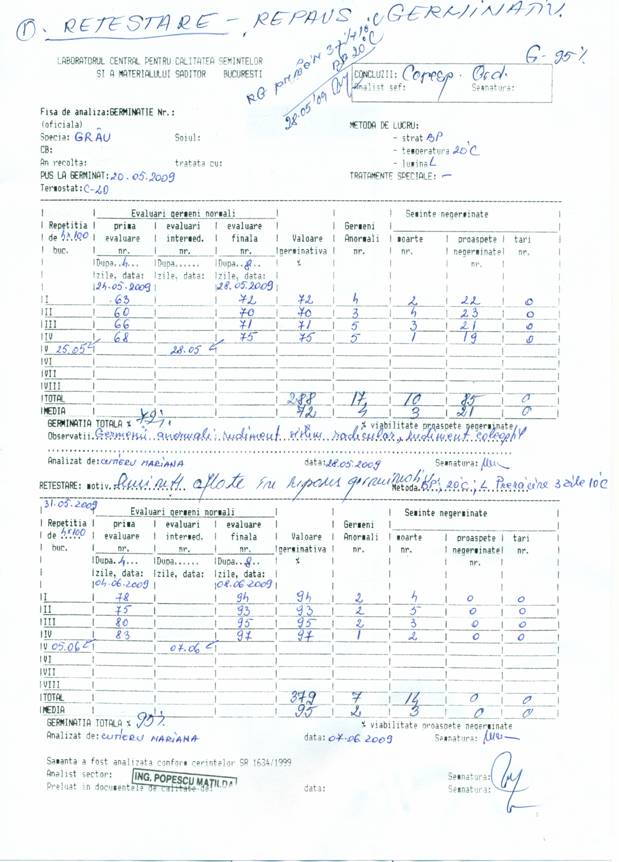 1). RETESTARE - REPAUS GERMINATIV.
LABORATORUL CENTRAL PENTRU CALITATEA SEMINTELOR
SI A MATERIALULUI SADITOR BUCURESTI
28.05'09
BP 20°C
G-95%
CONCLUZII: Coresp. Ord.
Analist sef: Semnatura:
Fisa de analiza:GERMINATIE Nr.:
(oficiala)
METODA DE LUCRU:
Specia: GRÂU Soiul:
- strat BP
CB:
- temperatura 20°C
An recolta: tratata cu:
- lumina L
PUS LA GERMINAT: 20.05.2009
TRATAMENTE SPECIALE: -
Termostat: C-20
Evaluari germeni normali Seminte negerminate
Repetitia prima evaluari evaluare Valoare Germeni moarte proaspete tari
de 4x100 evaluare intermed. finala germinativa Anormali nr. negerminate nr.
buc. nr. nr. nr. % nr. nr.
Dupa..4... Dupa...... Dupa..8..
zile, data: zile, data: zile, data:
24.05.2009 28.05.2009
I 63 72 72 4 2 22 0
II 60 70 70 3 4 23 0
III 66 71 71 5 3 21 0
IV 68 75 75 5 1 19 0
V 25.05 28.05
VI
VII
VIII
TOTAL 288 17 10 85 0
MEDIA 72 4 3 21 0
GERMINATIA TOTALA % 72% % viabilitate proaspete negerminate
Observatii: Germenii anormali rudiment sistem radicular, rudiment coleoptil
Analizat de: CUTIERU MARIANA data: 28.05.2009 Semnatura:
RETESTARE: motiv: Semințe aflate in repaus germinativ Metoda BP, 20°C, L Prerăcire 3 zile 10°C
31.05.2009 Evaluari germeni normali Seminte negerminate
Repetitia prima evaluari evaluare Valoare Germeni moarte proaspete tari
de 4x100 evaluare intermed. finala germinativa Anormali nr. negerminate nr.
buc. nr. nr. nr. % nr. nr.
Dupa..4... Dupa...... Dupa..8..
zile, data: zile, data: zile, data:
04.06.2009 08.06.2009
I 78 94 94 2 4 0 0
II 75 93 93 2 5 0 0
III 80 95 95 2 3 0 0
IV 83 97 97 1 2 0 0
V 05.06 07.06
VI
VII
VIII
TOTAL 379 7 14 0 0
MEDIA 95 2 3 0 0
GERMINATIA TOTALA % 95% % viabilitate proaspete negerminate
Analizat de: CUTIERU MARIANA data: 07.06.2009 Semnatura:
Samanta a fost analizata conform cerintelor SR 1634/1999
Analist sector: ING. POPESCU MATILDA Semnatura:
Preluat in documentele de calitate de: data: Semnatura: